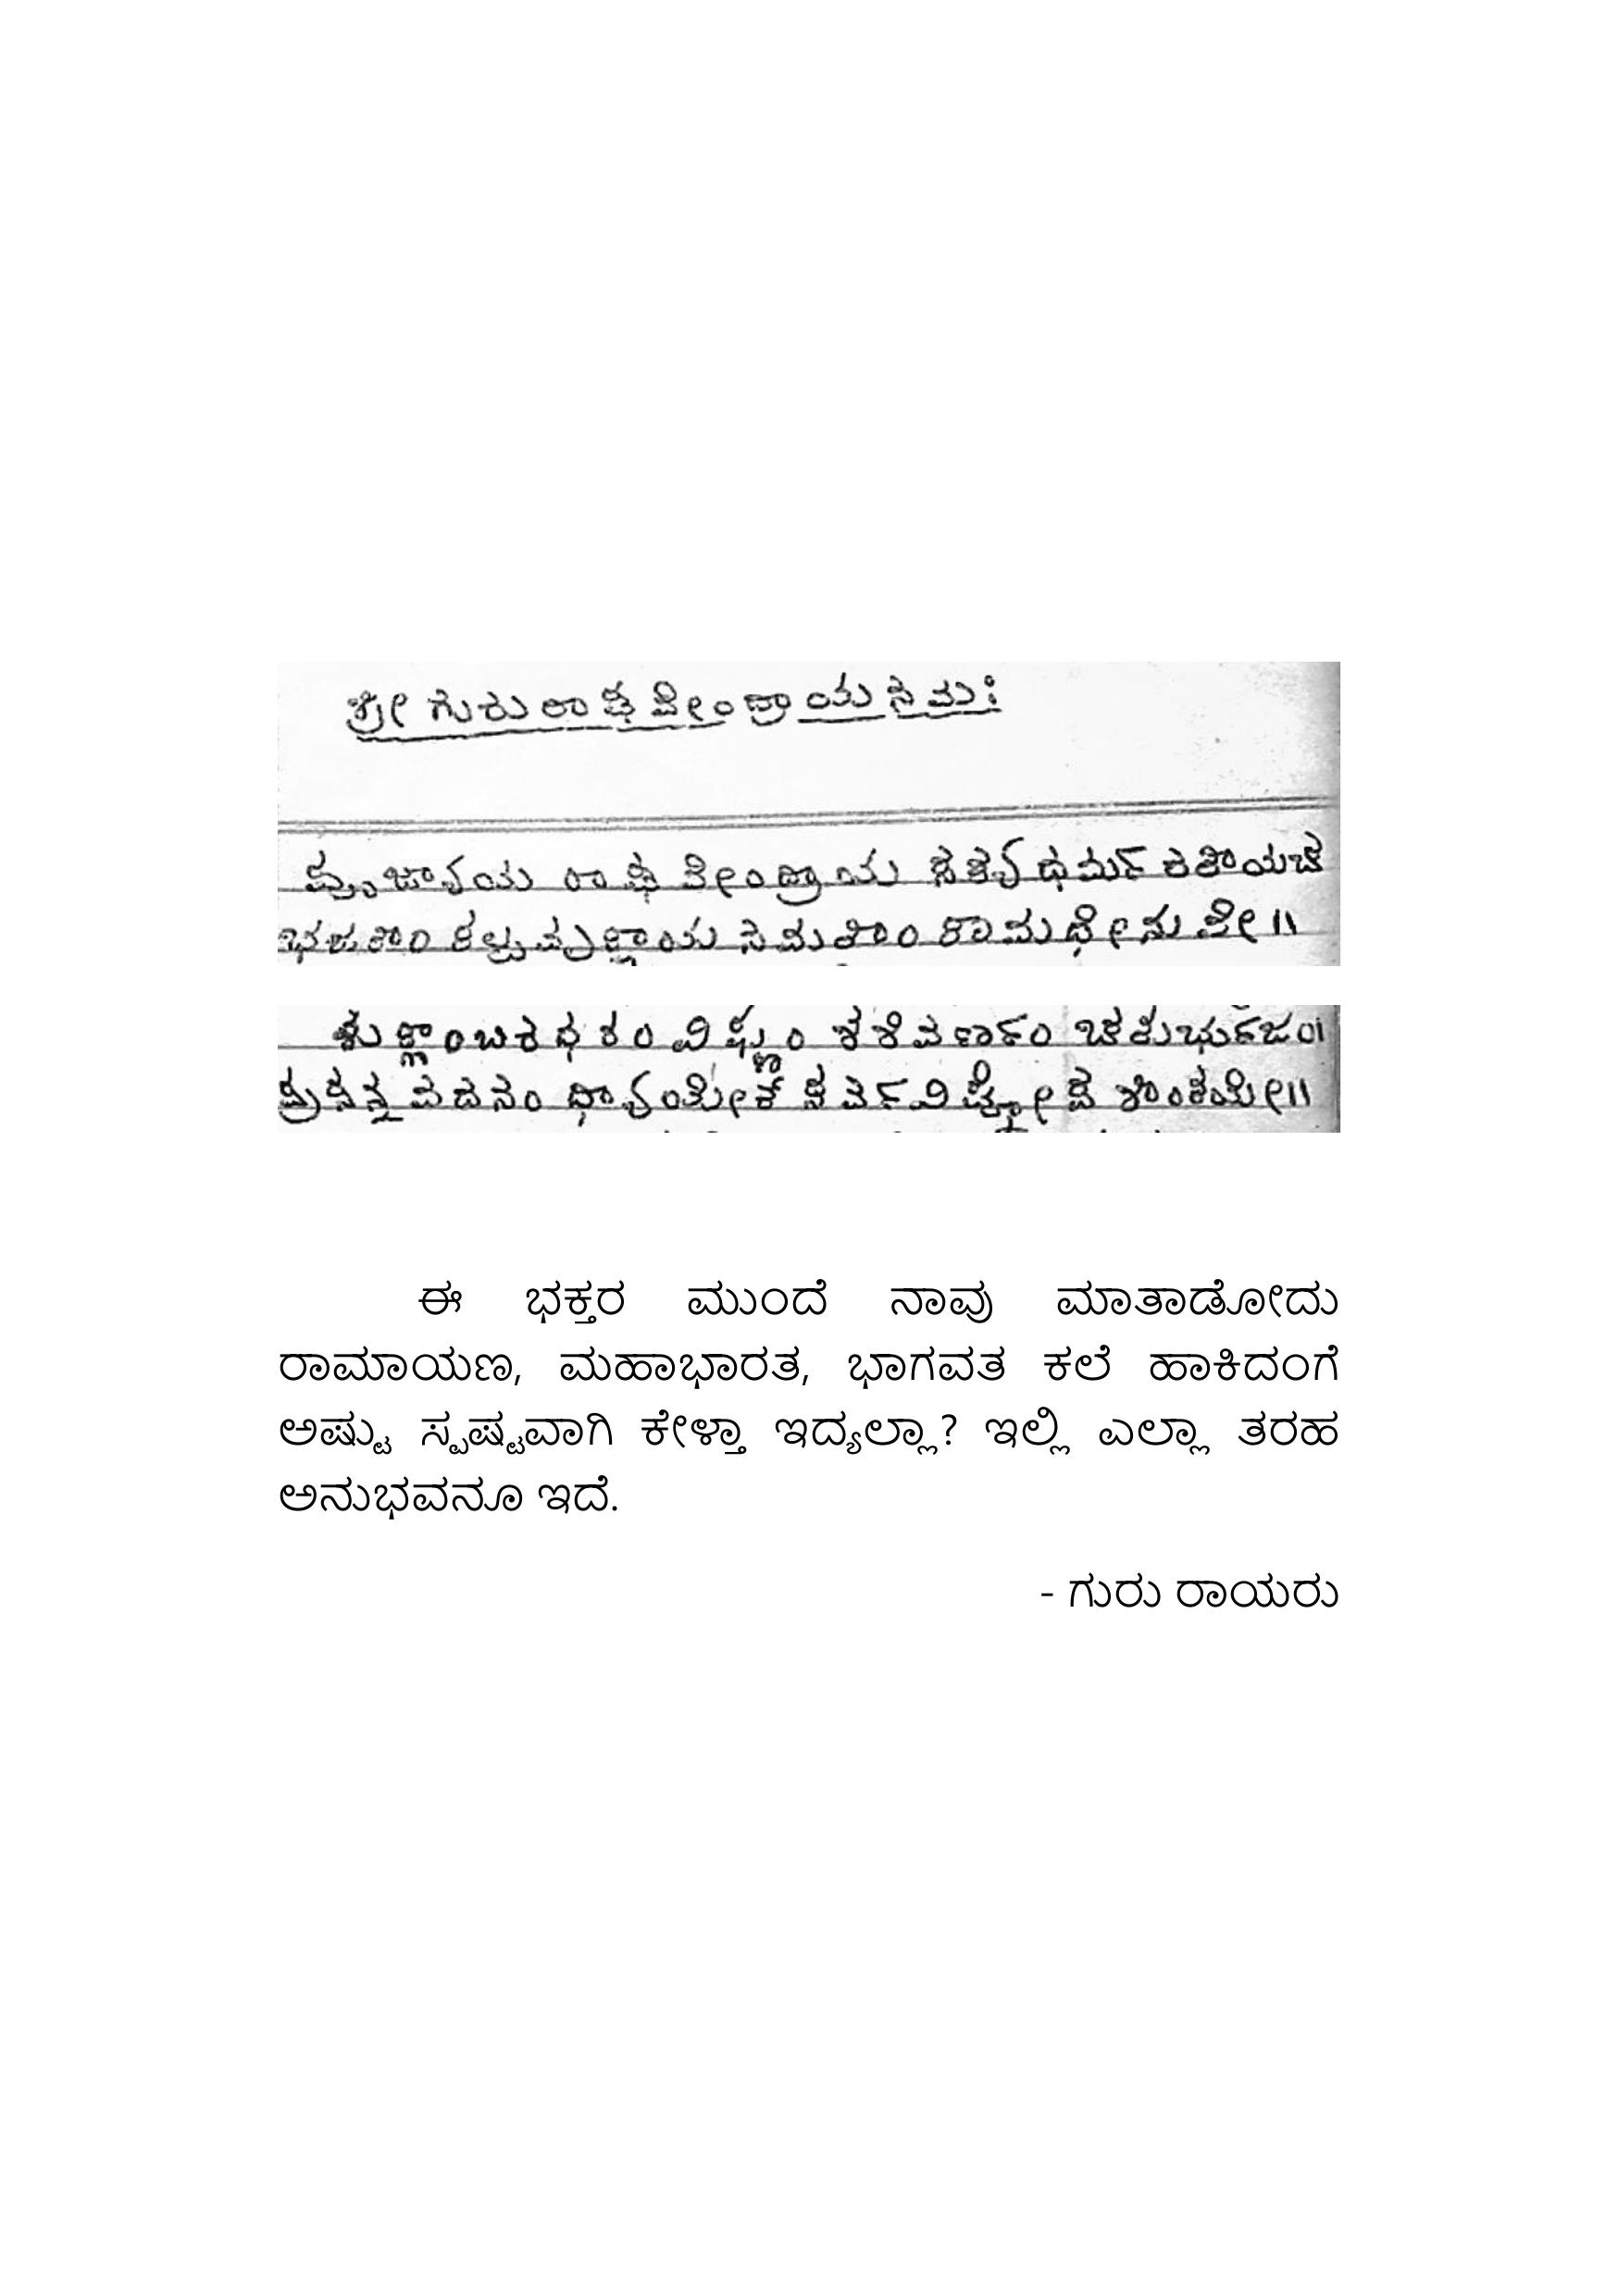 ಶ್ರೀ ಗುರು ರಾಘವೇಂದ್ರಾಯ ನಮಃ
ಪೂಜ್ಯಾಯ ರಾಘವೇಂದ್ರಾಯ ಸತ್ಯಧರ್ಮ ರತಾಯಚ
ಭಜತಾಂ ಕಲ್ಪವೃಕ್ಷಾಯ ನಮತಾಂ ಕಾಮಧೇನುವೇ॥
ಶುಕ್ಲಾಂಬರಧರಂ ವಿಷ್ಣುಂ ಶಶಿವರ್ಣಂ ಚತುರ್ಭುಜಂ।
ಪ್ರಸನ್ನ ವದನಂ ಧ್ಯಾಯೇತ್ ಸರ್ವವಿಘ್ನೋಪ ಶಾಂತಯೇ॥
ಈ ಭಕ್ತರ ಮುಂದೆ ನಾವು ಮಾತಾಡೋದು
ರಾಮಾಯಣ, ಮಹಾಭಾರತ, ಭಾಗವತ ಕಲೆ ಹಾಕಿದಂಗೆ
ಅಷ್ಟು ಸ್ಪಷ್ಟವಾಗಿ ಕೇಳ್ತಾ ಇದ್ಯಲ್ಲಾ? ಇಲ್ಲಿ ಎಲ್ಲಾ ತರಹ
ಅನುಭವನೂ ಇದೆ.
- ಗುರು ರಾಯರು